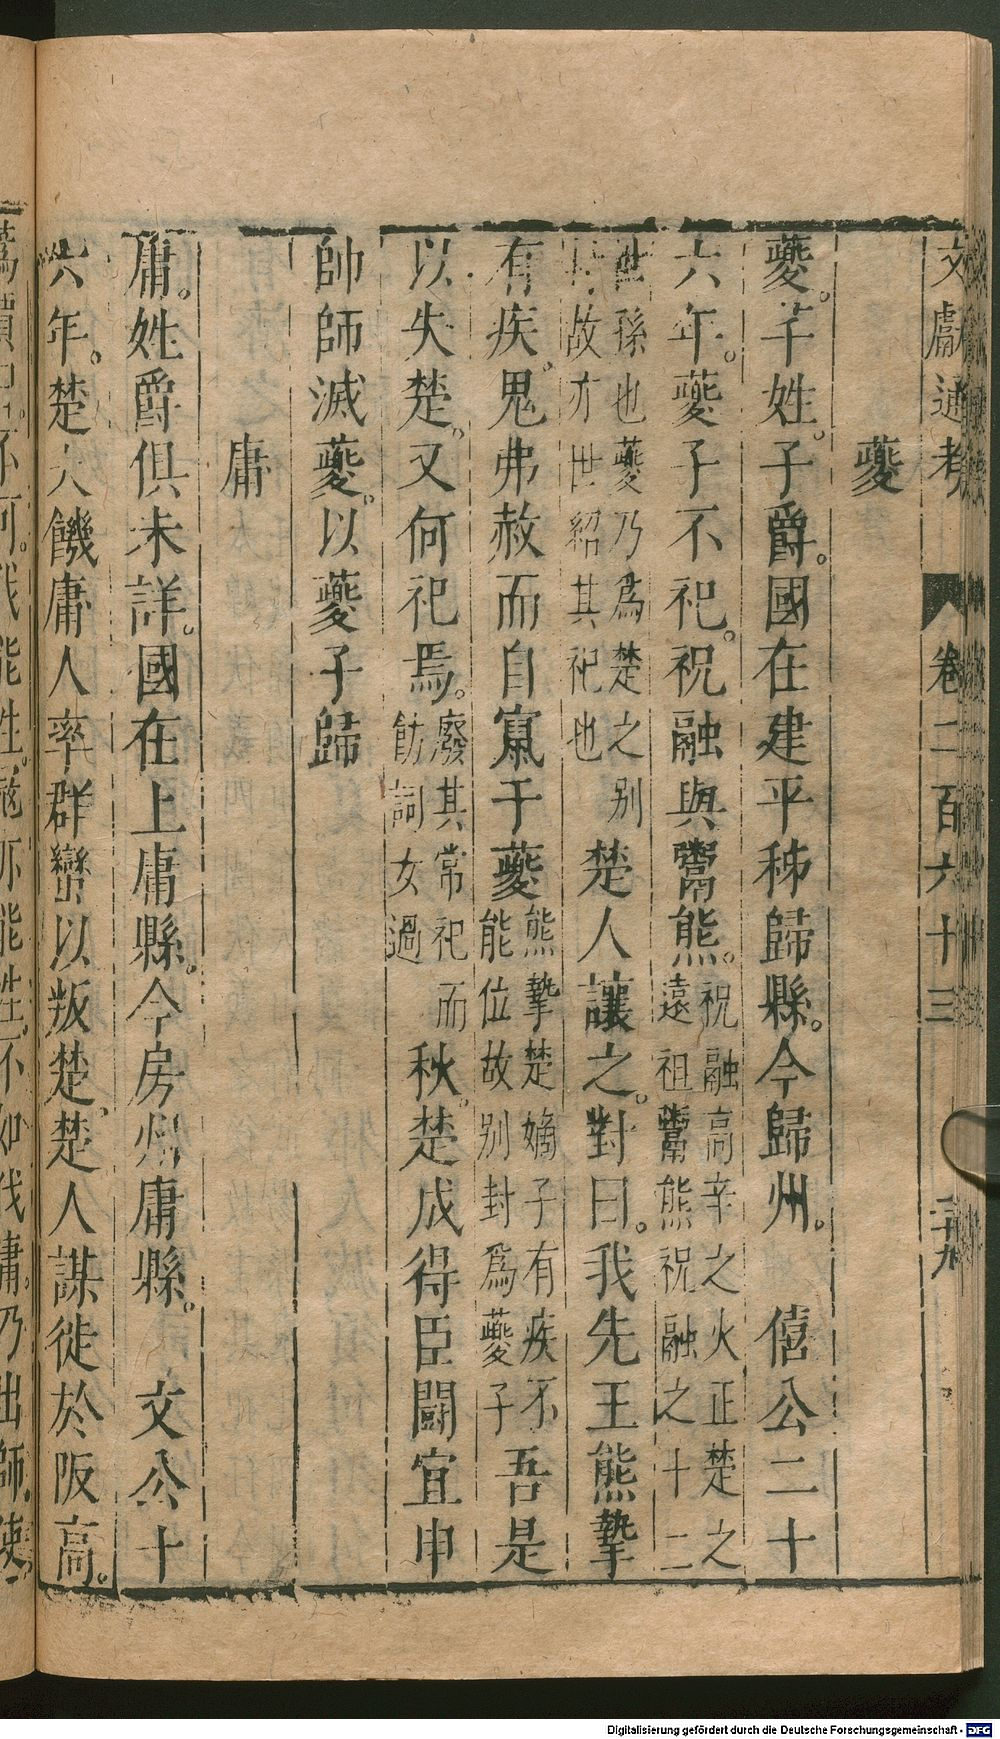 文獻通考 卷二百六十三 二十九
夔
夔。芊姓。子爵。國在建平秭歸縣。今歸州。 僖公二十
六年。夔子不祀。祝融與鬻熊。祝融高辛之火正楚之遠祖鬻熊祝融之十二
世孫也夔乃為楚之別故亦世紹其祀也楚人讓之。對曰。我先王熊摯
有疾。鬼弗赦而自竄于夔熊摯楚嫡子有疾不能位故別封為夔子吾是
以失楚。又何祀焉。廢其常祀而飾詞文過秋。楚成得臣鬭宜申
帥師滅夔。以夔子歸
庸
庸。姓爵俱未詳。國在上庸縣。今房州庸縣。 文公十
六年。楚大饑庸人率群蠻以叛楚。楚人謀徙於阪高。
蒍賈曰。不可。我能往。寇亦能往。不如伐庸。乃出師。使
Digitalisierung gefördert durch die Deutsche Forschungsgemeinschaft - DFG